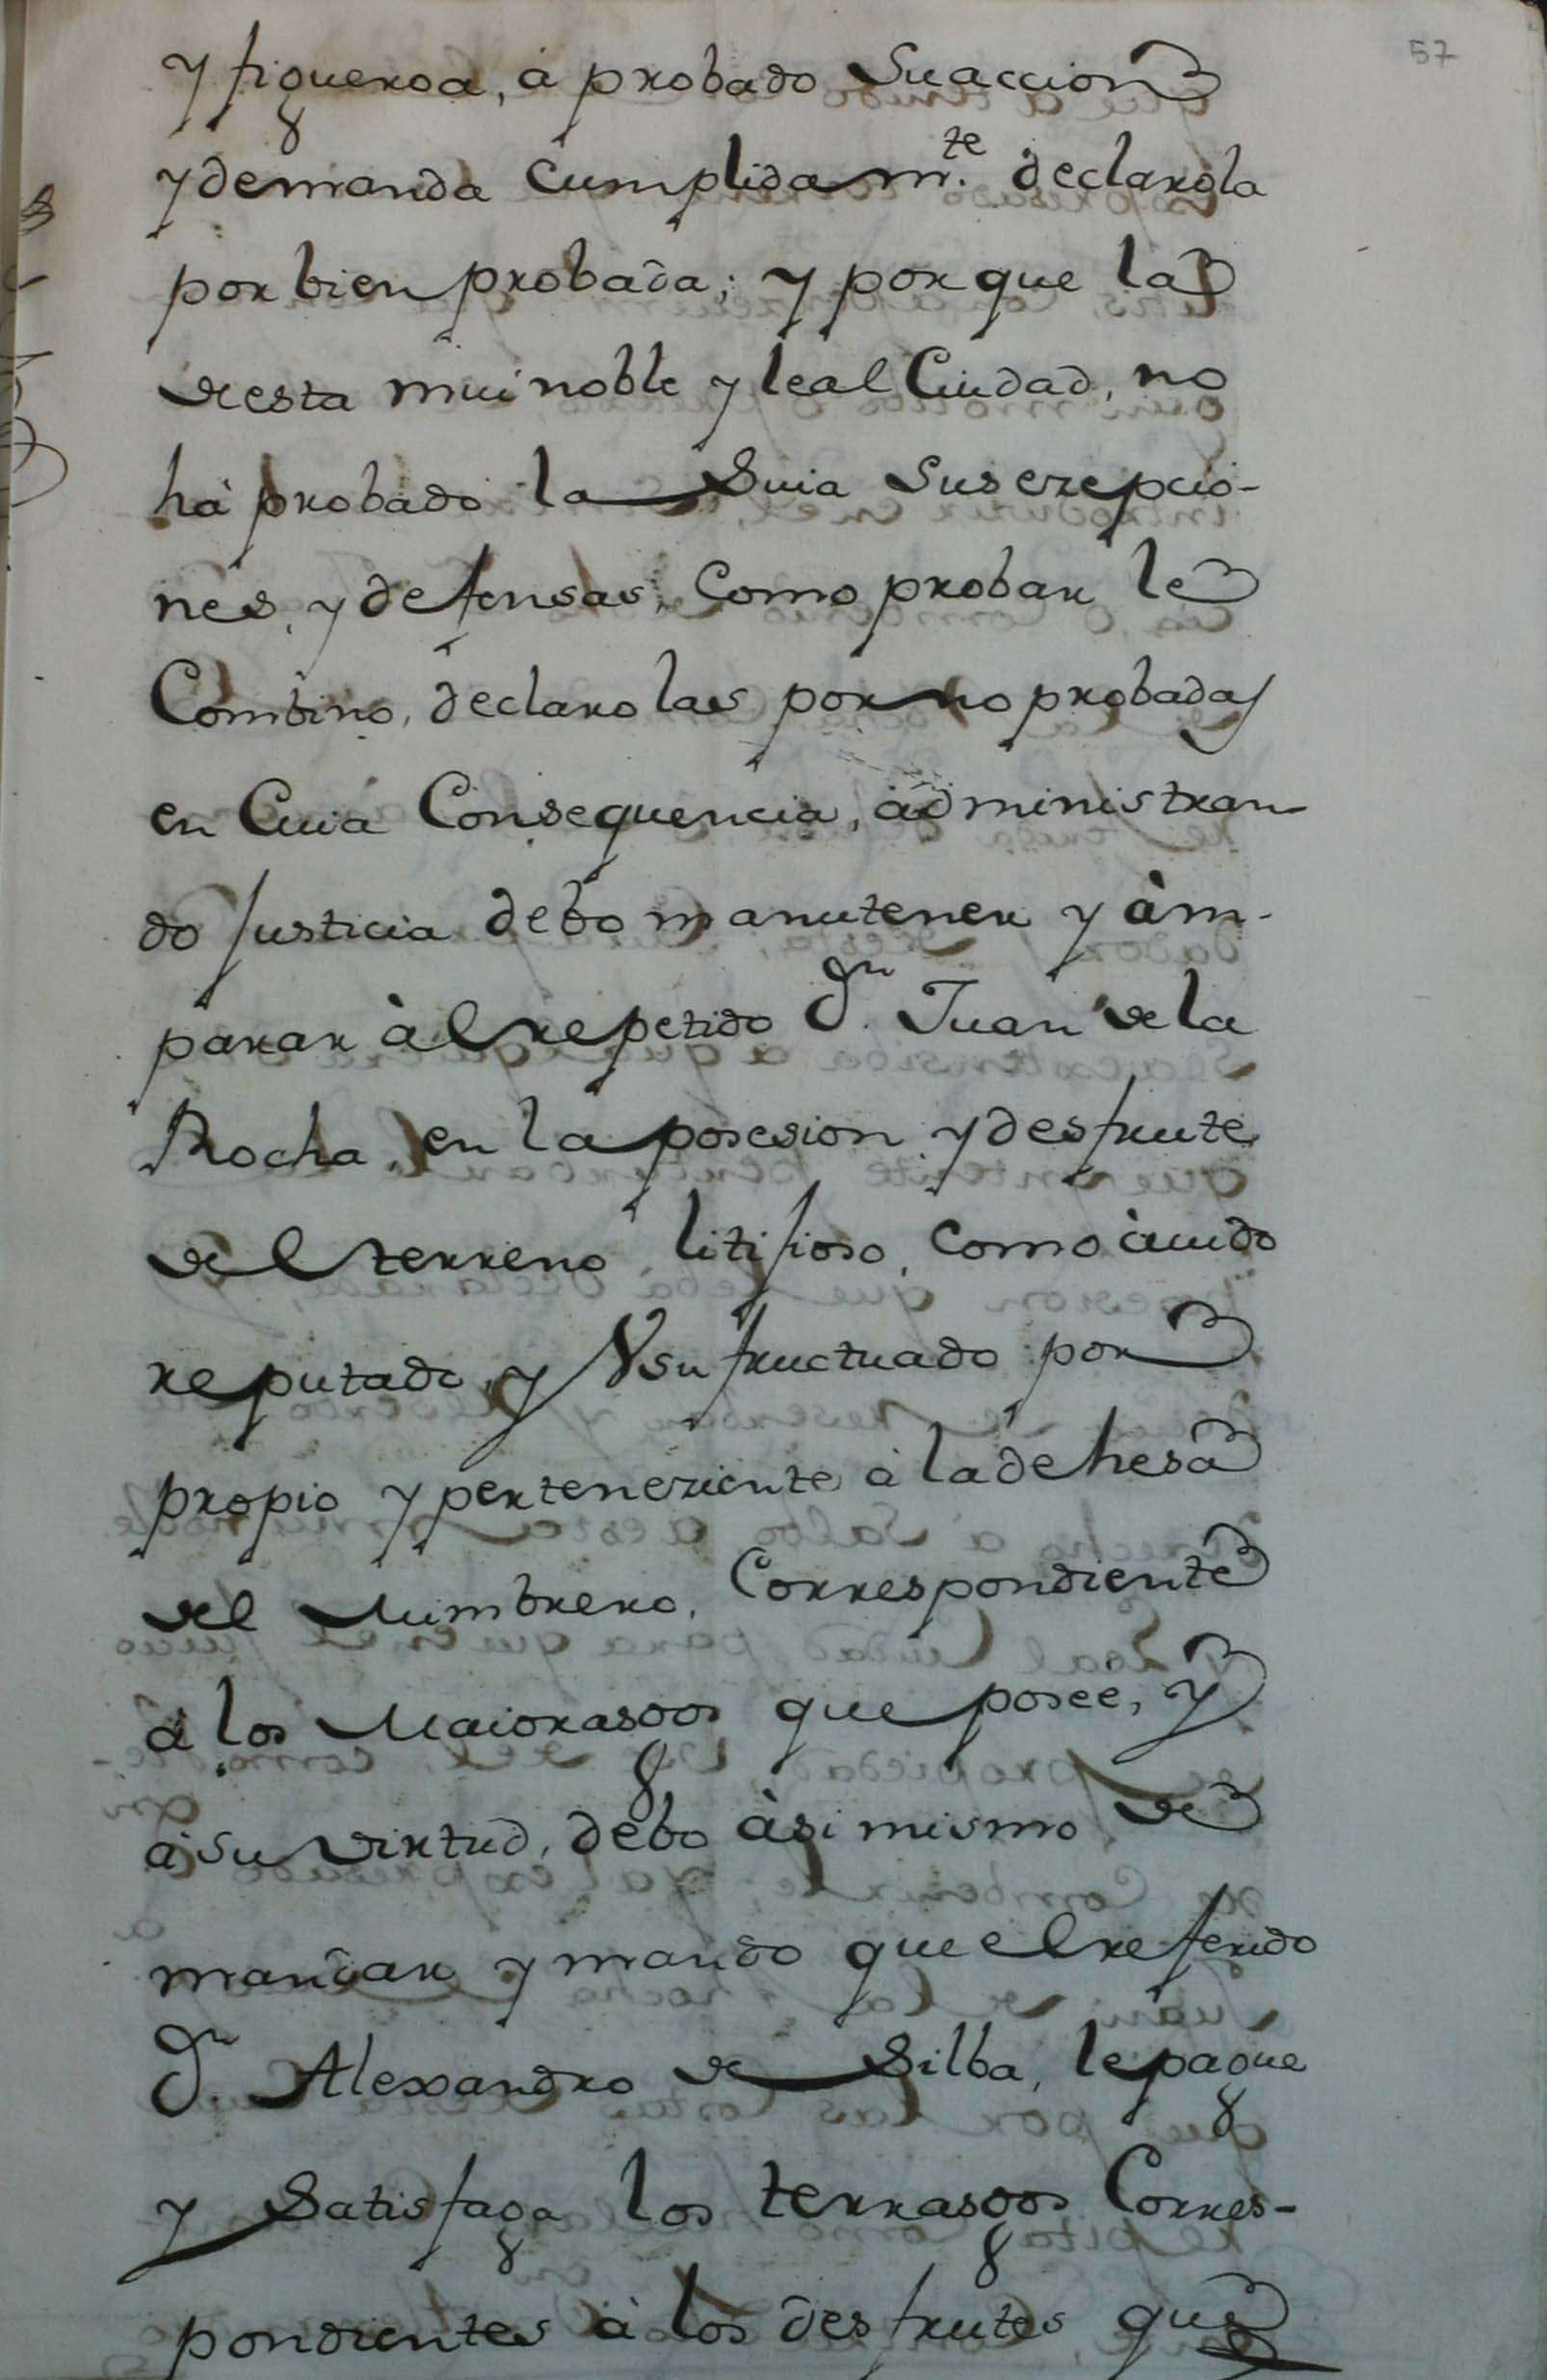 57
y figueroa, à probado Su accion
y demanda Cumplidam.te declarola
por bien probada; y por que la
de esta mui noble y leal Ciudad, no
hà probado la Suia Sus ezepcio-
nes, y defensas, Como probar le
Combino, declarolas por no probadas
en Cuia Consequencia, administran-
do Justicia debo manutener y àm-
parar àl repetido Dn. Juan de la
Rocha, en la posesion y desfrute
del terreno litijioso, Como àuido
reputado, y Vsufructuado por
propio y perteneziente à la dehesa
del Mimbrero, Correspondiente
à los Maiorasgos que posee, y
à su virtud, debo àsi mismo de
mandar y mando que el referido
Dn. Alexandro de Silba, le pague
y Satisfaga los terrasgos Corres-
pondientes à los desfrutes que